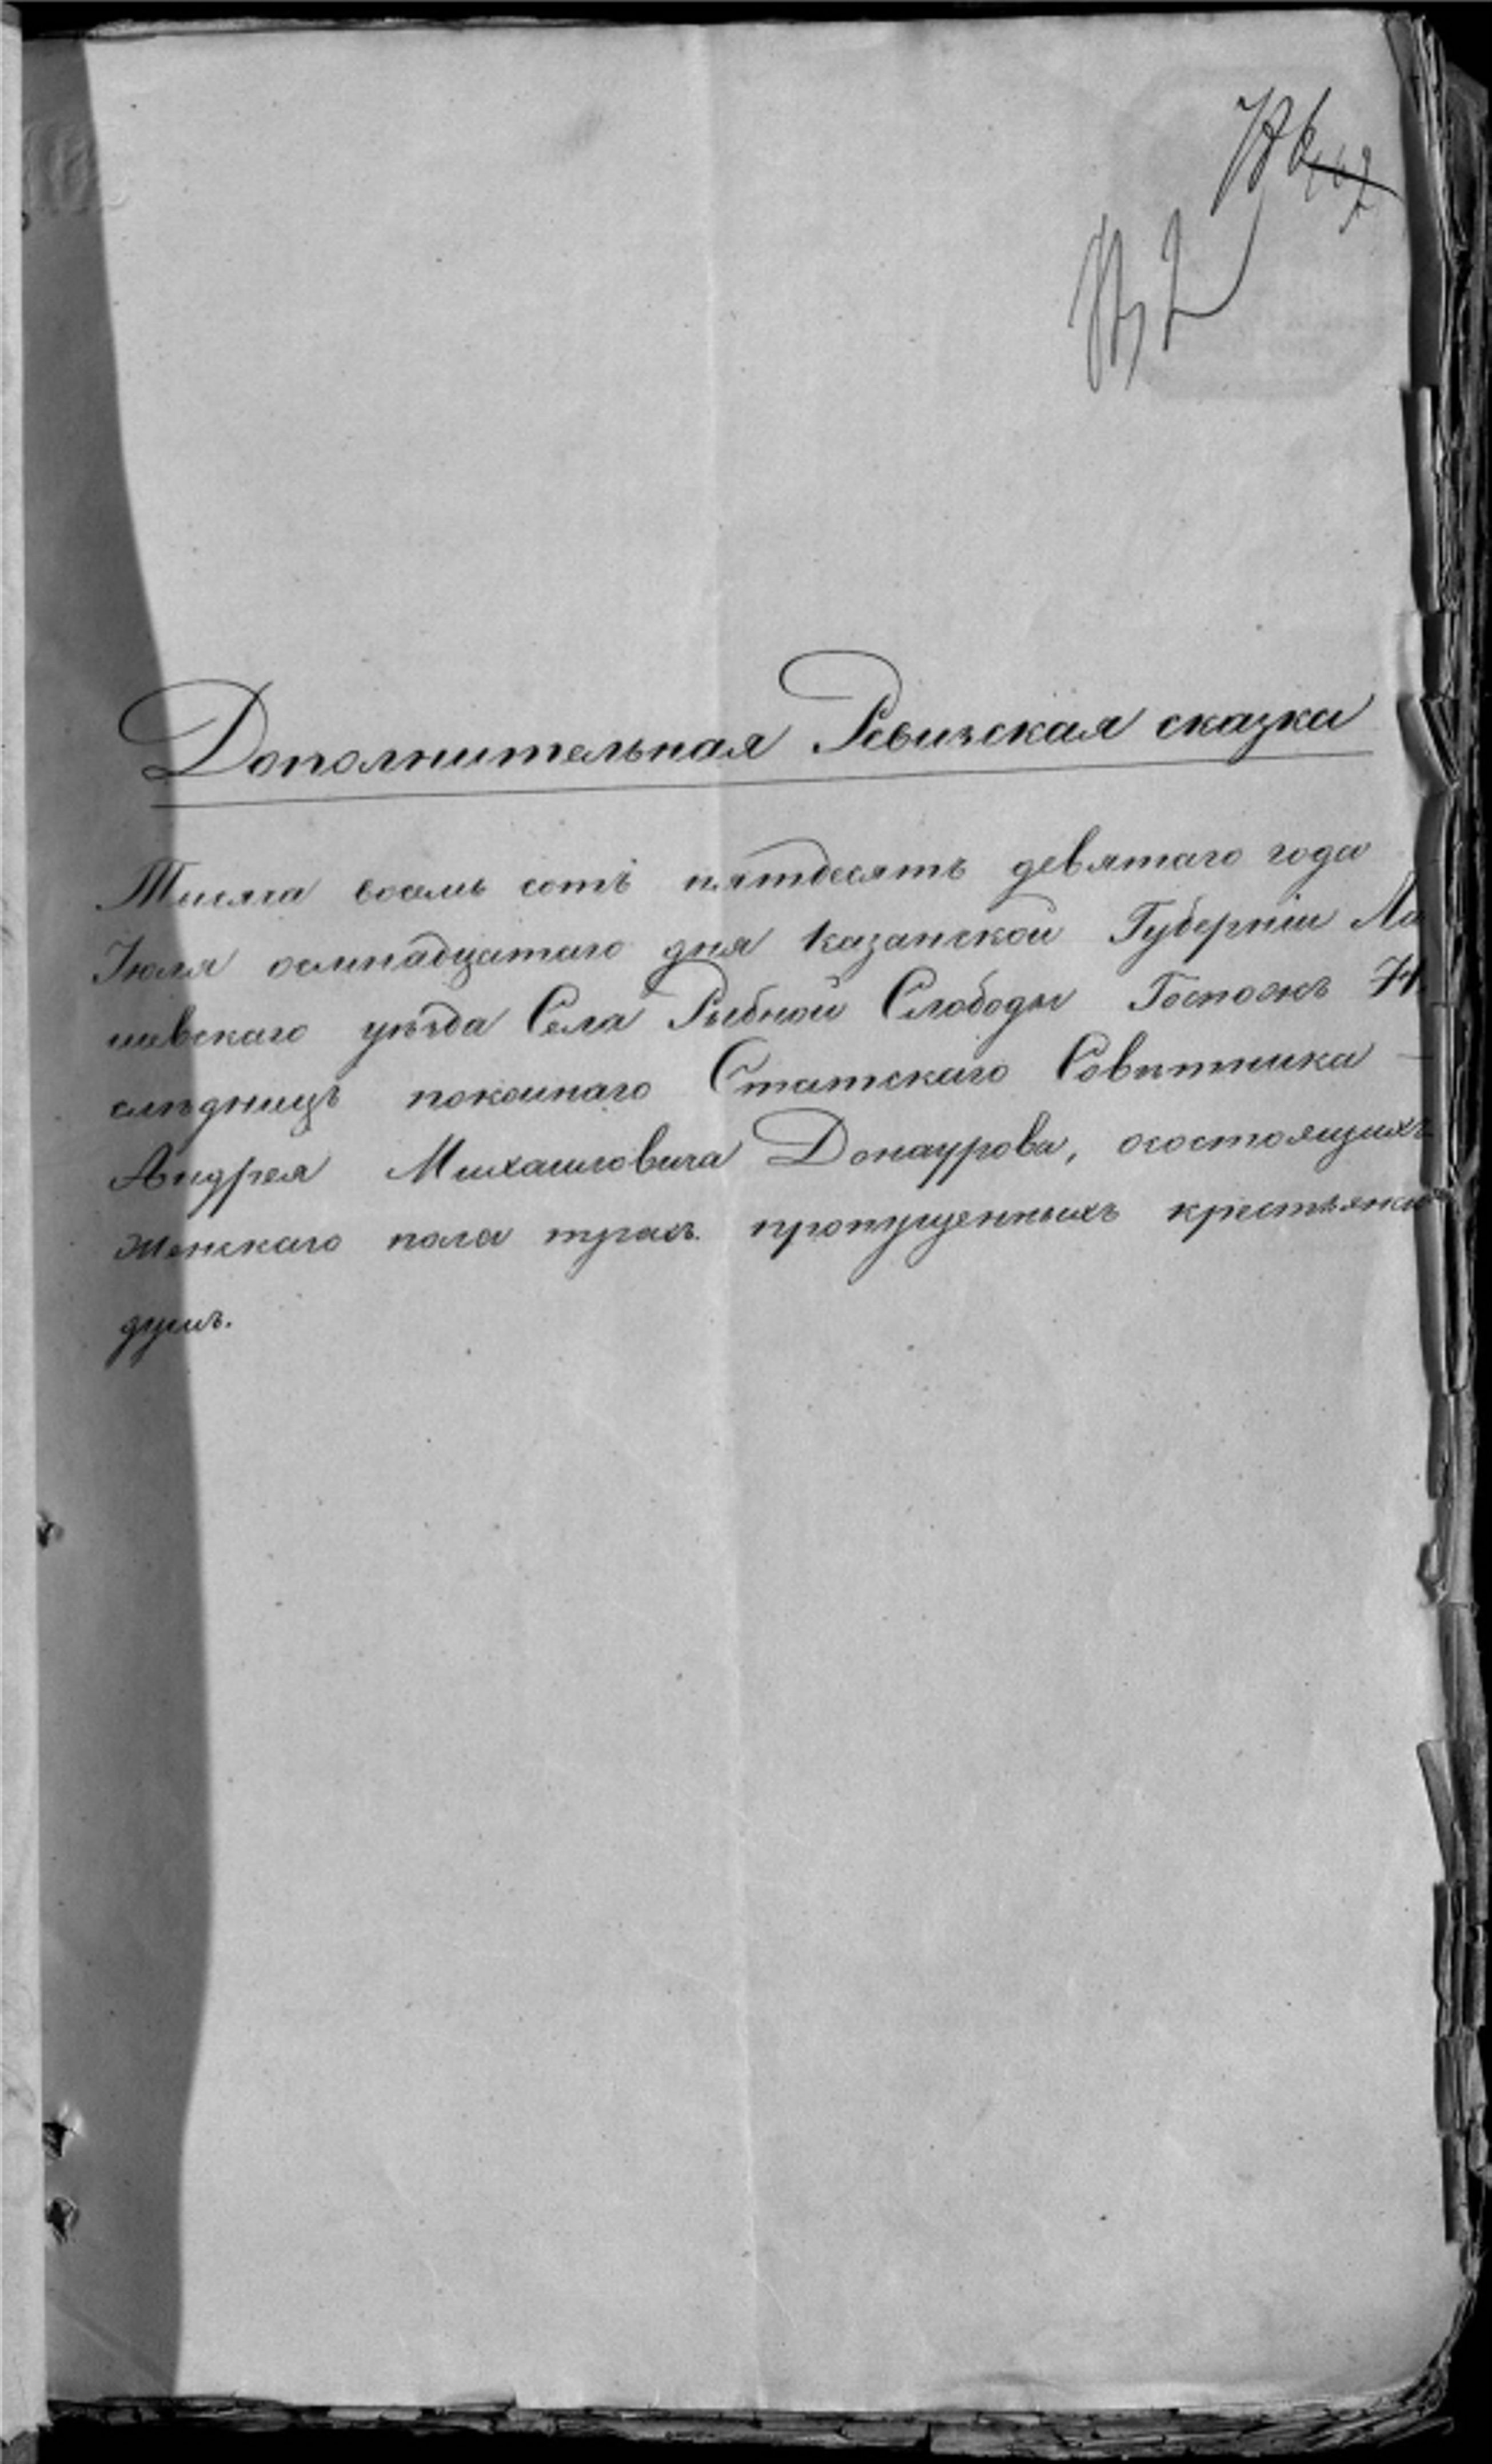 Дополнительная Ревизская сказка
Тысяча восемь сотъ пятдесятъ девятаго года
Іюля осмнадцатаго дня Казанской Губерніи Ла
ишевскаго уѣзда Села Рыбной Слободы Госпожъ На
слѣдницъ покойнаго Статскаго Совѣтника
Андрея Михайловича Донаурова, осостоящихъ
женскаго пола трехъ пропущенныхъ крестьянск
душъ.